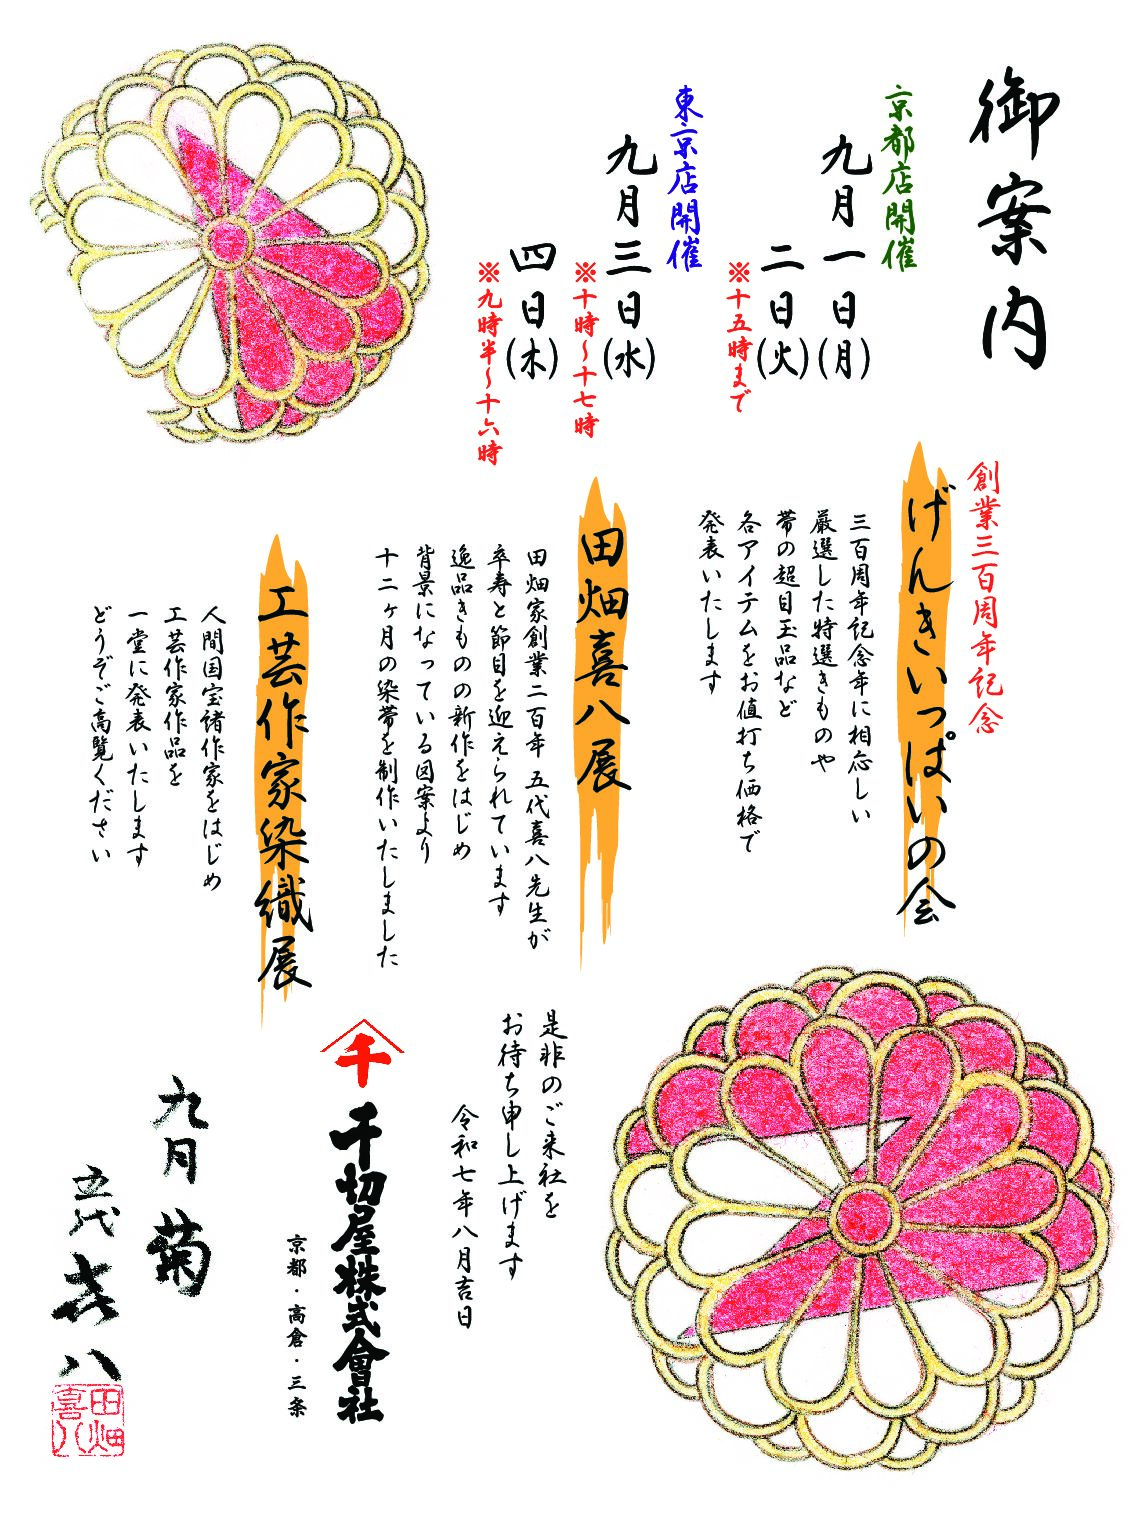 御案内
京都店開催
九月一日(月)
二日(火)
※十五時まで
東京店開催
九月三日(水)
※十時～十七時
四日(木)
※九時半～十六時
創業三百周年記念
げんきいっぱいの会
三百周年記念年に相応しい
厳選した特選きものや
帯の超目玉品など
各アイテムをお値打ち価格で
発表いたします
田畑喜八展
田畑家創業二百年 五代喜八先生が
卒寿と節目を迎えられています
逸品きものの新作をはじめ
背景になっている図案より
十二ヶ月の染帯を制作いたしました
工芸作家染織展
人間国宝諸作家をはじめ
工芸作家作品を
一堂に発表いたします
どうぞご高覧ください
是非のご来社を
お待ち申し上げます
令和七年八月吉日
千
千切屋株式會社
京都・高倉・三条
九月 菊
五代 喜八
田畑喜八